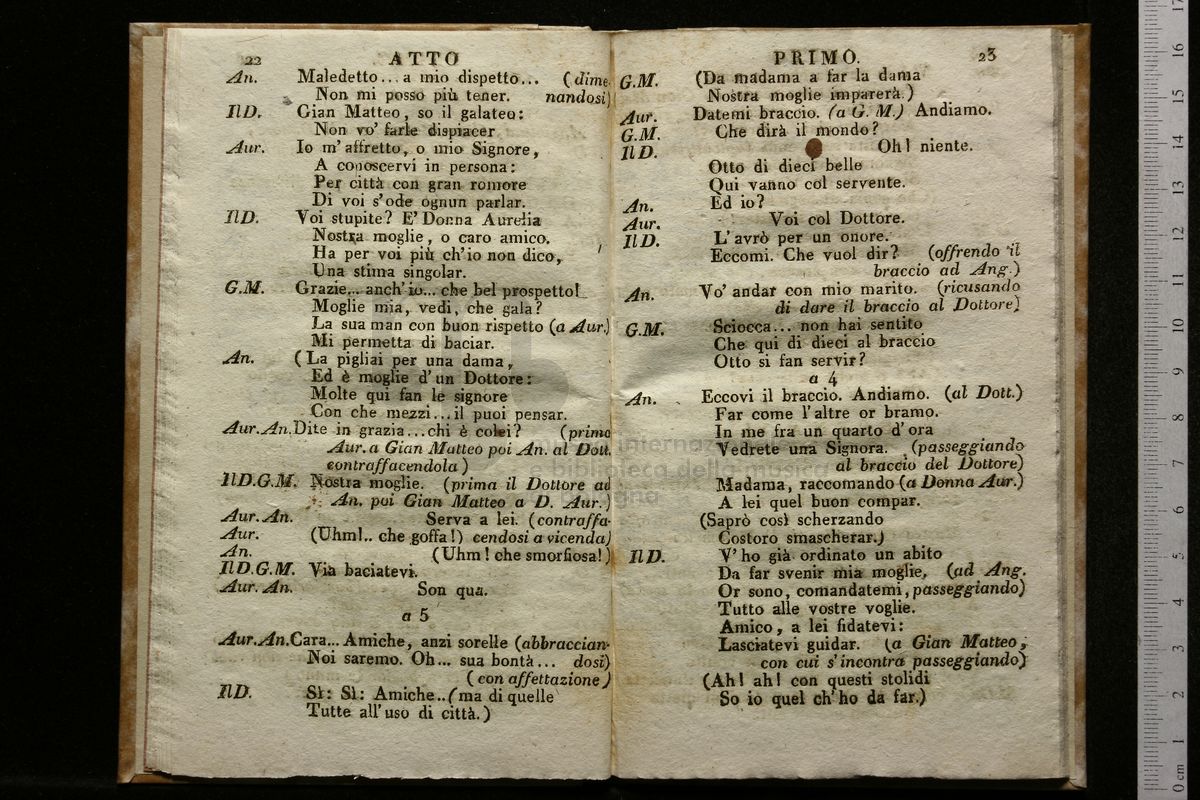 22 ATTO
An. Maledetto... a mio dispetto... (dime-
Non mi posso più tener. nandosi)
Il D. Gian Matteo, so il galateo:
Non vo' farle dispiacer
Aur. Io m'affretto, o mio Signore,
A conoscervi in persona:
Per città con gran romore
Di voi s'ode ognun parlar.
Il D. Voi stupite? E' Donna Aurelia
Nostra moglie, o caro amico.
Ha per voi più ch'io non dico,
Una stima singolar.
G.M. Grazie... anch'io... che bel prospetto!
Moglie mia, vedi, che gala?
La sua man con buon rispetto (a Aur.)
Mi permetta di baciar.
An. (La pigliai per una dama,
Ed è moglie d'un Dottore:
Molte qui fan le signore
Con che mezzi... il puoi pensar.
Aur. An. Dite in grazia... chi è colei? (prima
Aur. a Gian Matteo poi An. al Dott.
contraffacendola)
Il D. G.M. Nostra moglie. (prima il Dottore ad
An. poi Gian Matteo a D. Aur.)
Aur. An. Serva a lei. (contraffa-
Aur. (Uhm!.. che goffa!) cendosi a vicenda)
An. (Uhm! che smorfiosa!)
Il D. G.M. Via baciatevi.
Aur. An. Son qua.
a 5
Aur. An. Cara... Amiche, anzi sorelle (abbraccian-
Noi saremo. Oh... sua bontà... dosi)
(con affettazione)
Il D. Sì: Sì: Amiche.. (ma di quelle
Tutte all'uso di città.)
PRIMO. 23
G.M. (Da madama a far la dama
Nostra moglie imparerà.)
Aur. Datemi braccio. (a G. M.) Andiamo.
G.M. Che dirà il mondo?
Il D. Oh! niente.
Otto di dieci belle
Qui vanno col servente.
An. Ed io?
Aur. Voi col Dottore.
Il D. L'avrò per un onore.
Eccomi. Che vuol dir? (offrendo il
braccio ad Ang.)
An. Vo' andar con mio marito. (ricusando
di dare il braccio al Dottore)
G.M. Sciocca... non hai sentito
Che qui di dieci al braccio
Otto si fan servir?
a 4
An. Eccovi il braccio. Andiamo. (al Dott.)
Far come l'altre or bramo.
In me fra un quarto d'ora
Vedrete una Signora. (passeggiando
al braccio del Dottore)
Madama, raccomando (a Donna Aur.)
A lei quel buon compar.
(Saprò così scherzando
Costoro smascherar.)
Il D. V'ho già ordinato un abito
Da far svenir mia moglie, (ad Ang.
Or sono, comandatemi, passeggiando)
Tutto alle vostre voglie.
Amico, a lei fidatevi:
Lasciatevi guidar. (a Gian Matteo,
con cui s'incontra passeggiando)
(Ah! ah! con questi stolidi
So io quel ch'ho da far.)
museo internazionale
e biblioteca della musica
bologna
0 cm 1 2 3 4 5 6 7 8 9 10 11 12 13 14 15 16 17